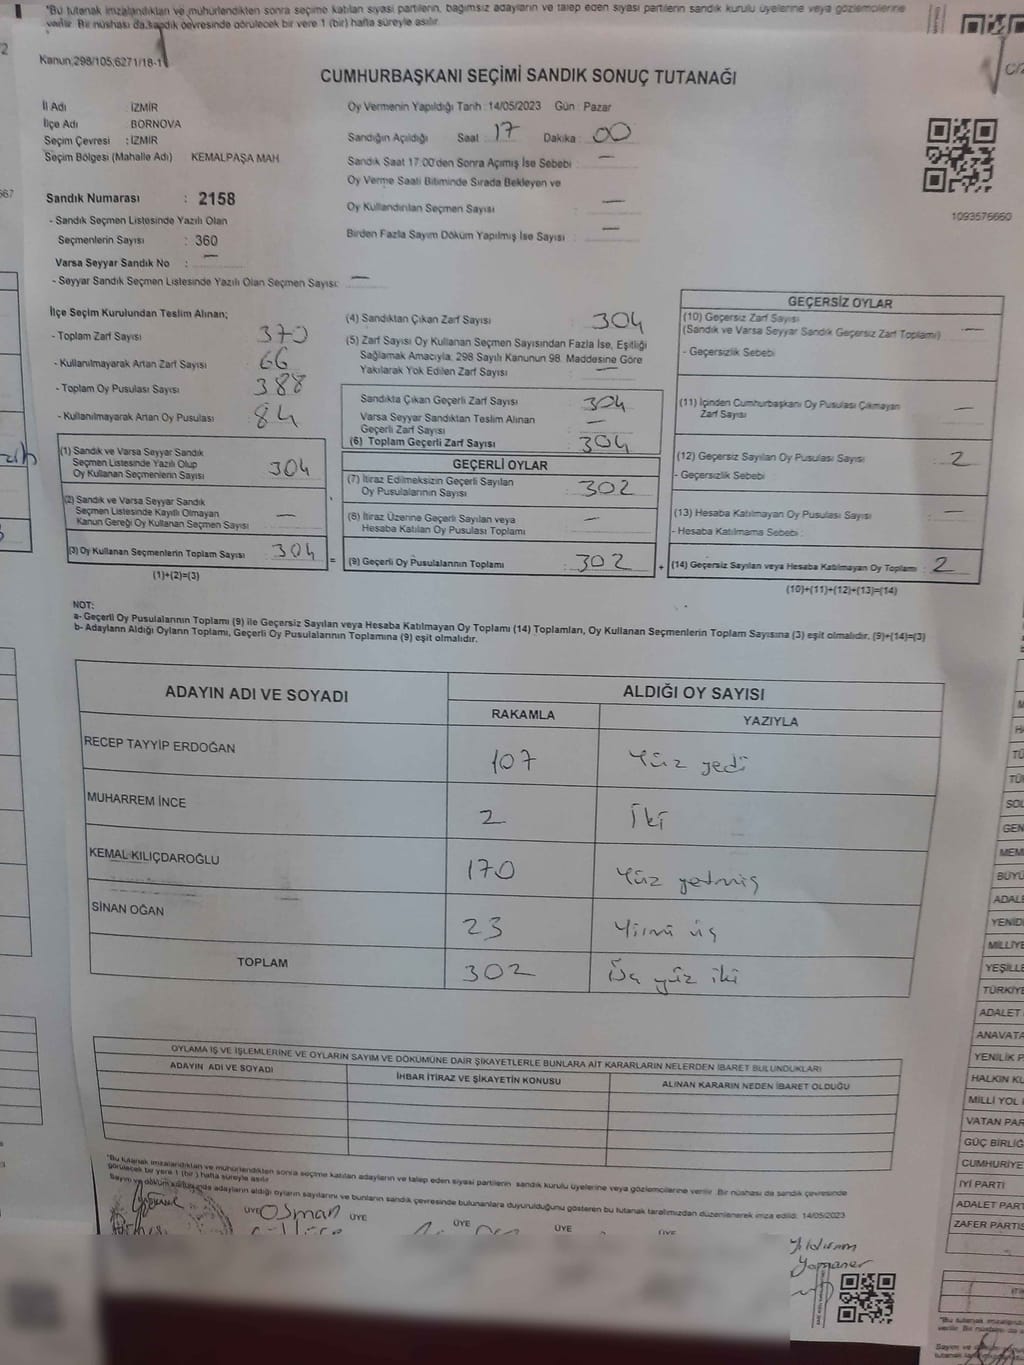 "Bu tutanak imzalandıktan ve mühürlendikten sonra seçime katılan siyasi partilerin, bağımsız adayların ve talep eden siyasi partilerin sandık kurulu üyelerine veya gözlemcilerine
verilir. Bir nüshası da sandık çevresinde görülecek bir yere 1 (bir) hafta süreyle asılır.
Kanun;298/105,6271/18-1
CUMHURBAŞKANI SEÇİMİ SANDIK SONUÇ TUTANAĞI
İl Adı İZMİR
İlçe Adı BORNOVA
Seçim Çevresi : İZMİR
Seçim Bölgesi (Mahalle Adı) KEMALPAŞA MAH
Oy Vermenin Yapıldığı Tarih : 14/05/2023 Gün : Pazar
Sandığın Açıldığı Saat : 17 Dakika : 00
Sandık Saat 17:00'den Sonra Açımış İse Sebebi : —
Oy Verme Saati Bitiminde Sırada Bekleyen ve
Oy Kullandırılan Seçmen Sayısı : —
Birden Fazla Sayım Döküm Yapılmış İse Sayısı : —
1093576660
Sandık Numarası : 2158
- Sandık Seçmen Listesinde Yazılı Olan
Seçmenlerin Sayısı : 360
Varsa Seyyar Sandık No : —
- Seyyar Sandık Seçmen Listesinde Yazılı Olan Seçmen Sayısı: —
İlçe Seçim Kurulundan Teslim Alınan;
- Toplam Zarf Sayısı 370
- Kullanılmayarak Artan Zarf Sayısı 66
- Toplam Oy Pusulası Sayısı 388
- Kullanılmayarak Artan Oy Pusulası 84
(1) Sandık ve Varsa Seyyar Sandık
Seçmen Listesinde Yazılı Olup
Oy Kullanan Seçmenlerin Sayısı : 304
(2) Sandık ve Varsa Seyyar Sandık
Seçmen Listesinde Kayıtlı Olmayan
Kanun Gereği Oy Kullanan Seçmen Sayısı —
(3) Oy Kullanan Seçmenlerin Toplam Sayısı : 304
(1)+(2)=(3)
(4) Sandıktan Çıkan Zarf Sayısı 304
(5) Zarf Sayısı Oy Kullanan Seçmen Sayısından Fazla İse, Eşitliği
Sağlamak Amacıyla, 298 Sayılı Kanunun 98. Maddesine Göre
Yakılarak Yok Edilen Zarf Sayısı : —
Sandıkta Çıkan Geçerli Zarf Sayısı 304
Varsa Seyyar Sandıktan Teslim Alınan
Geçerli Zarf Sayısı —
(6) Toplam Geçerli Zarf Sayısı : 304
GEÇERLİ OYLAR
(7) İtiraz Edilmeksizin Geçerli Sayılan
Oy Pusulalarının Sayısı : 302
(8) İtiraz Üzerine Geçerli Sayılan veya
Hesaba Katılan Oy Pusulası Toplamı —
= (9) Geçerli Oy Pusulalarının Toplamı : 302
GEÇERSİZ OYLAR
(10) Geçersiz Zarf Sayısı
(Sandık ve Varsa Seyyar Sandık Geçersiz Zarf Toplamı) —
- Geçersizlik Sebebi :
(11) İçinden Cumhurbaşkanı Oy Pusulası Çıkmayan
Zarf Sayısı —
(12) Geçersiz Sayılan Oy Pusulası Sayısı : 2
- Geçersizlik Sebebi :
(13) Hesaba Katılmayan Oy Pusulası Sayısı : —
- Hesaba Katılmama Sebebi :
+ (14) Geçersiz Sayılan veya Hesaba Katılmayan Oy Toplamı : 2
(10)+(11)+(12)+(13)=(14)
NOT:
a- Geçerli Oy Pusulalarının Toplamı (9) ile Geçersiz Sayılan veya Hesaba Katılmayan Oy Toplamı (14) Toplamları, Oy Kullanan Seçmenlerin Toplam Sayısına (3) eşit olmalıdır. (9)+(14)=(3)
b- Adayların Aldığı Oyların Toplamı, Geçerli Oy Pusulalarının Toplamına (9) eşit olmalıdır.
ADAYIN ADI VE SOYADI ALDIĞI OY SAYISI
RAKAMLA YAZIYLA
RECEP TAYYİP ERDOĞAN 107 Yüz yedi
MUHARREM İNCE 2 İki
KEMAL KILIÇDAROĞLU 170 Yüz yetmiş
SİNAN OĞAN 23 Yirmi üç
TOPLAM 302 Üç yüz iki
OYLAMA İŞ VE İŞLEMLERİNE VE OYLARIN SAYIM VE DÖKÜMÜNE DAİR ŞİKAYETLERLE BUNLARA AİT KARARLARIN NELERDEN İBARET BULUNDUKLARI
ADAYIN ADI VE SOYADI İHBAR İTİRAZ VE ŞİKAYETİN KONUSU ALINAN KARARIN NEDEN İBARET OLDUĞU
"Bu tutanak imzalandıktan ve mühürlendikten sonra seçime katılan adayların ve talep eden siyasi partilerin sandık kurulu üyelerine veya gözlemcilerine verilir. Bir nüshası da sandık çevresinde
görülecek bir yere 1 (bir) hafta süreyle asılır.
Sayım ve döküm sonucunda adayların aldığı oyların sayılarını ve bunların sandık çevresinde bulunanlara duyurulduğunu gösteren bu tutanak tarafımızdan düzenlenerek imza edildi. 14/05/2023
ÜYE Osman ÜYE ÜYE ÜYE ÜYE
Yıldırım
Yamaner
SOL
GEN
MEM
BÜYÜ
ADAL
YENİD
MİLLİYE
YEŞİLLE
TÜRKİYE
ADALET
ANAVATA
YENİLİK P
HALKIN KU
MİLLİ YOL
VATAN PAR
GÜÇ BİRLİĞ
CUMHURİYE
İYİ PARTİ
ADALET PAR
ZAFER PARTİS